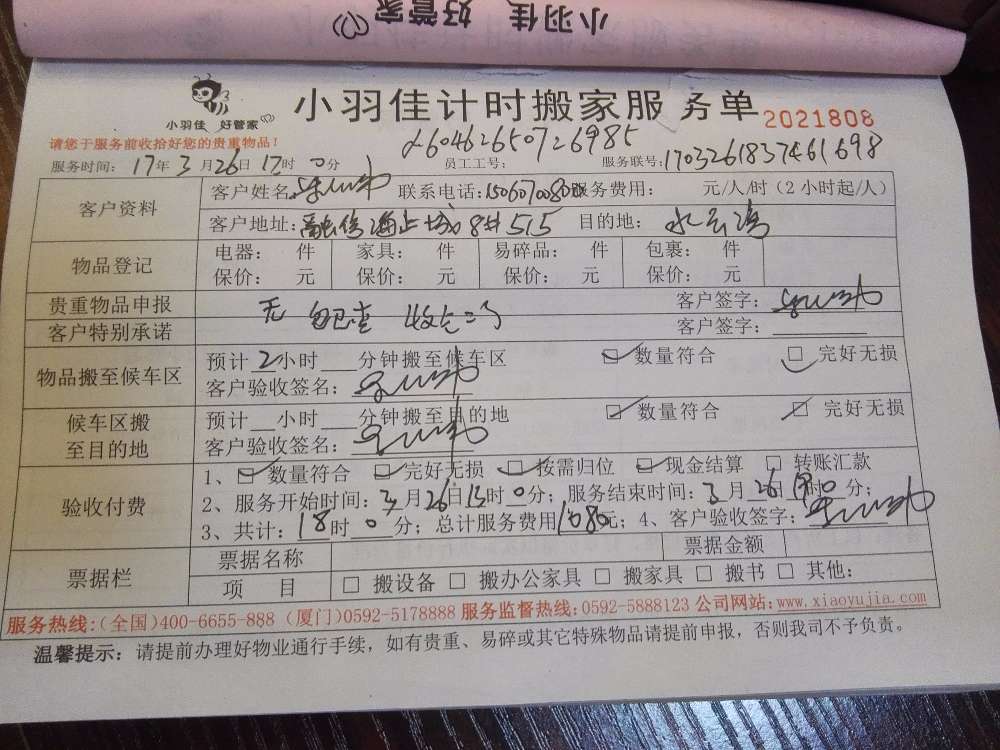 小羽佳 好管家
小羽佳 好管家
小羽佳计时搬家服务单 2021808
请您于服务前收拾好您的贵重物品!
服务时间: 17年3月26日12时0分 员工工号: 服务联号: 1703261837461698
客户资料
客户姓名: 联系电话: 服务费用: 元/人/时(2小时起/人)
客户地址: 515 目的地:
物品登记
电器: 件 家具: 件 易碎品: 件 包裹: 件
保价: 元 保价: 元 保价: 元 保价: 元
贵重物品申报 无 客户签字:
客户特别承诺 客户签字:
物品搬至候车区
预计2小时 分钟搬至候车区 数量符合 □ 完好无损
客户验收签名:
候车区搬至目的地
预计__小时__分钟搬至目的地 数量符合 完好无损
客户验收签名:
验收付费
1、 数量符合 完好无损 按需归位 现金结算 □ 转账汇款
2、服务开始时间: 3月26日13时0分; 服务结束时间: 3月26 时0分;
3、共计: 18时0分; 总计服务费用1080元; 4、客户验收签字:
票据栏
票据名称 票据金额
项 目 □ 搬设备 □ 搬办公家具 □ 搬家具 □ 搬书 □ 其他:
服务热线:(全国)400-6655-888 (厦门)0592-5178888 服务监督热线:0592-5888123 公司网站:www.xiaoyujia.com
温馨提示: 请提前办理好物业通行手续, 如有贵重、易碎或其它特殊物品请提前申报, 否则我司不予负责。